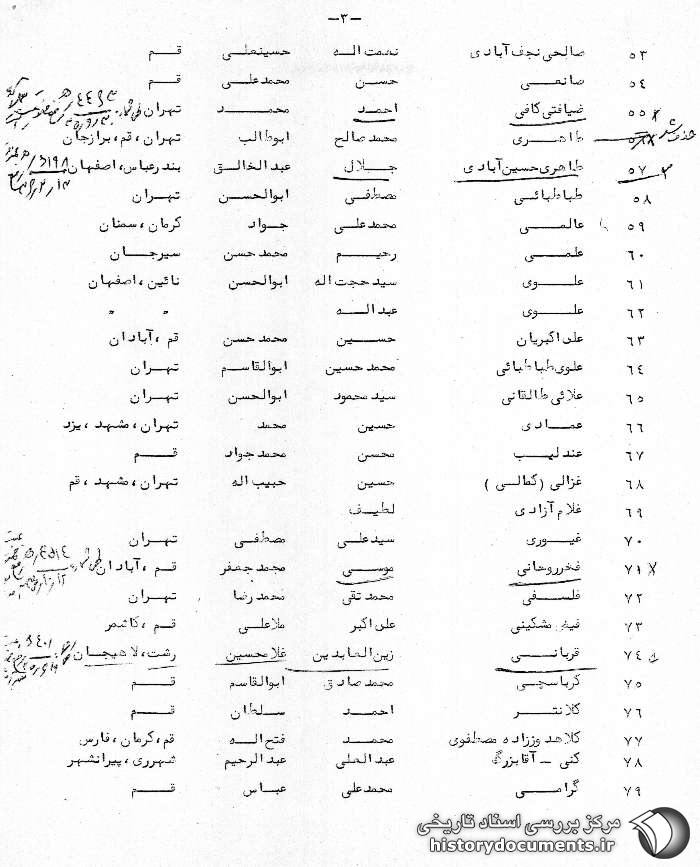 -۳-
۵۳ صالحی نجف آبادی نعمت اله حسینعلی قم
۵۴ صانعی حسن محمدعلی قم
۵۵x ضیافتی کافی احمد محمد تهران
طاهری محمد صالح ابوطالب تهران، قم، برازجان
۵۷ طاهری حسین آبادی جلال عبدالخالق بندرعباس، اصفهان
۵۸ طباطبائی مصطفی ابوالحسن تهران
۵۹ عالمی محمدعلی جواد کرمان، سمنان
۶۰ علمی رحیم محمد حسن سیرجان
۶۱ علوی سید حجت اله ابوالحسن نائین، اصفهان
۶۲ علوی عبداله " "
۶۳ علی اکبریان حسین محمد حسن قم، آبادان
۶۴ علوی طباطبائی محمد حسین ابوالقاسم تهران
۶۵ علائی طالقانی سید محمود ابوالحسن تهران
۶۶ عمادی حسین محمد تهران، مشهد، یزد
۶۷ عندلیب محسن محمد جواد قم
۶۸ غزالی (کمالی) حسین حبیب اله تهران، مشهد، قم
۶۹ غلام آزادی لطیف
۷۰ غیوری سیدعلی مصطفی تهران
۷۱x فخرروحانی موسی محمد جعفر قم، آبادان
۷۲ فلسفی محمد تقی محمد رضا تهران
۷۳ فیض مشکینی علی اکبر ملاعلی قم، کاشمر
۷۴ قربانی زین العابدین غلامحسین رشت، لاهیجان
۷۵ کرباسچی محمد صادق ابوالقاسم قم
۷۶ کلانتر احمد سلطان قم
۷۷ کلاهدوززاده مصطفوی محمد فتح اله قم، کرمان، فارس
۷۸ کنی - آقابزرگ عبدالعلی عبدالرحیم شهرری، پیرانشهر
۷۹ گرامی محمدعلی عباس قم
مرکز بررسی اسناد تاریخی
historydocuments.ir